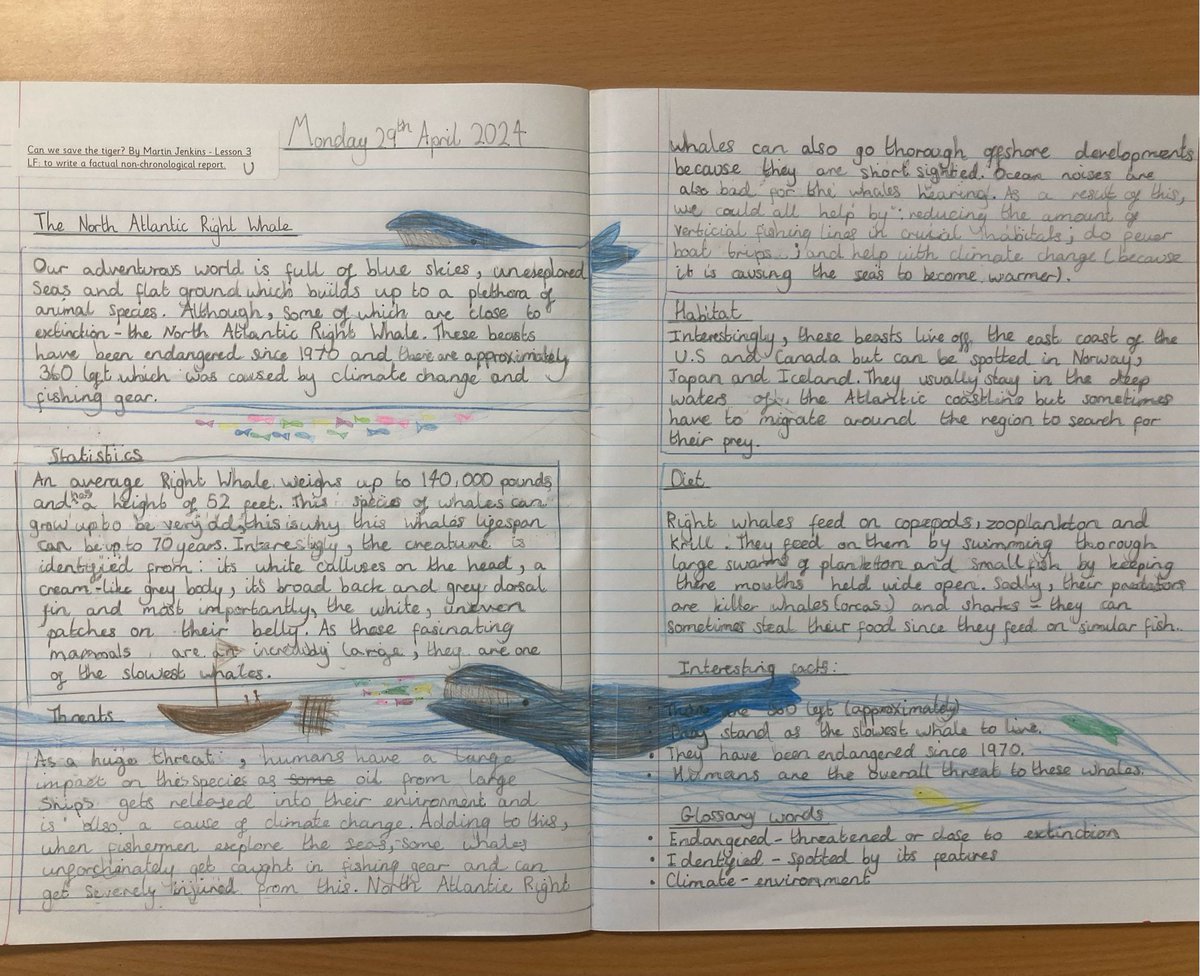 Monday 29th April 2024
Can we save the tiger? By Martin Jenkins - Lesson 3
LF: to write a factual non-chronological report.
The North Atlantic Right Whale
Our adventurous world is full of blue skies, unexeplored
seas and flat ground which builds up to a plethora of
animal species. Although, some of which are close to
extinction - the North Atlantic Right Whale. These beasts
have been endangered since 1970 and there are approximately
360 left which was caused by climate change and
fishing gear.
Statistics
An average Right Whale weighs up to 140,000 pounds
and has a height of 52 feet. This species of whales can
grow up to be very old, this is why this whale's lifespan
can be up to 70 years. Interestigly, the creature is
identified from: its white calluses on the head, a
cream-like grey body, its broad back and grey dorsal
fin and most importantly, the white, uneven
patches on their belly. As these fasinating
mammals are an incredibly large, they are one
of the slowest whales.
Threats
As a huge threat, humans have a large
impact on this species as some oil from large
ships gets released into their environment and
is also a cause of climate change. Adding to this,
when fishermen explore the seas, some whales
unforchinately get caught in fishing gear and can
get severely injured from this. North Atlantic Right
whales can also go thorough offshore developments
because they are short sighted. Ocean noises are
also bad for the whales hearing. As a result of this,
we could all help by: reducing the amount of
verticial fishing lines in crucial habitats; do fewer
boat trips ; and help with climate change (because
it is causing the seas to become warmer).
Habitat
Interestingly, these beasts live off the east coast of the
U.S and Canada but can be spotted in Norway,
Japan and Iceland. They usually stay in the deep
waters of the Atlantic coastline but sometimes
have to migrate around the region to search for
their prey.
Diet
Right whales feed on copepods, zooplankton and
krill. They feed on them by swimming thorough
large swarms of plankton and small fish by keeping
there mouths held wide open. Sadly, their predators
are killer whales (orcas) and sharks - they can
sometimes steal their food since they feed on simular fish.
Interesting facts:
• There are 360 left (approximately)
• They stand as the slowest whale to live.
• They have been endangered since 1970.
• Humans are the overall threat to these whales.
Glossary words
• Endangered - threatened or close to extinction
• Identifyied - spotted by its features
• Climate - environment